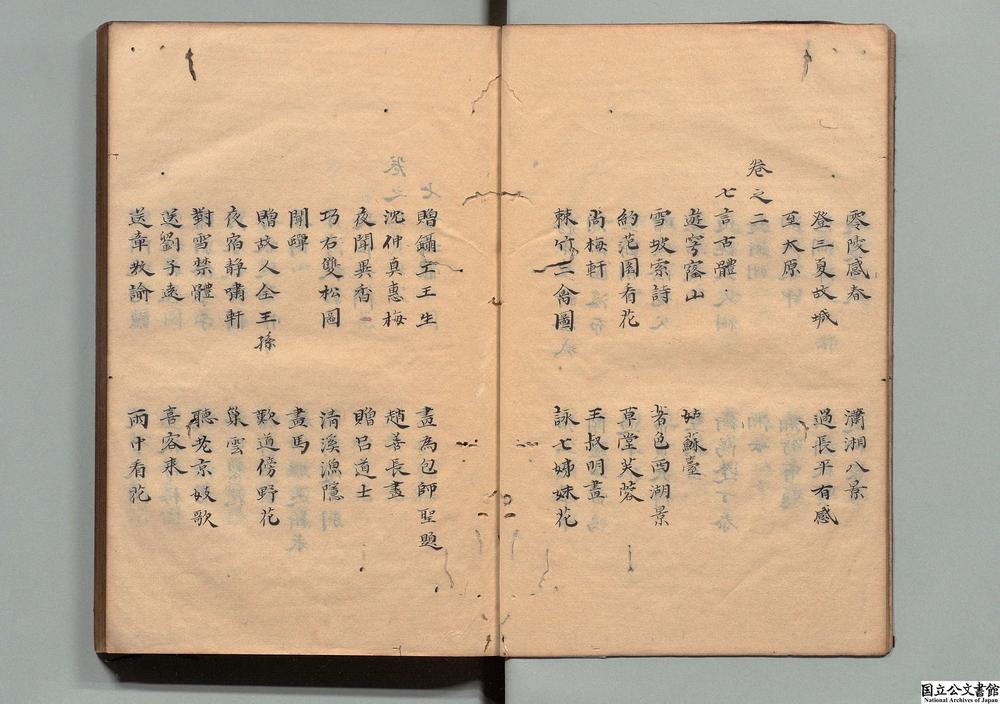 零陵感春 瀟湘八景
登三夏故城 過長平有感
至太原
卷之二
七言古體
遊穹窿山 姑蘇臺
雪坡索詩 若色西湖景
約范園看花 萬堂芙蓉
尚梅軒 王叔明畫
棘竹三禽圖 詠七姊妹花
贈鑷工王生 畫為包師聖題
沈仲真惠梅 趙善長畫
夜聞異香 贈呂道士
巧石雙松圖 清溪漁隱
聞蟬 畫馬
贈故人全王孫 歎道傍野花
夜宿靜嘯軒 巢雲
對雪禁體 聽老京妓歌
送劉子遠 喜客來
送章牧諭 雨中看花
国立公文書館
National Archives of Japan